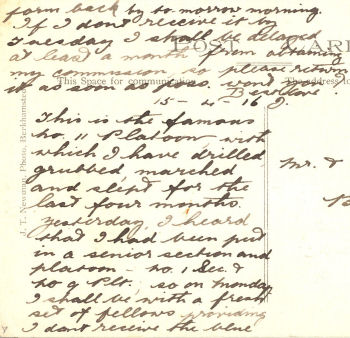 form back by to-morrow morning.
If I dont receive it by
Tuesday I shall be delayed
at least a month from obtaining
my commission so please return
it as soon as poss. wont you
Best love
POST CARD
This Space for communication
The address to
15-4-16
This is the famous
No. 11 Platoon with
which I have drilled
grubbed, marched
and slept for the
last four months.
Yesterday, I heard
that I had been put
in a senior section and
platoon - No. 1 Sec. &
No 9 Plt. so on Monday
I shall be with a fresh
set of fellows providing
I dont receive the blue
Mr. &
J. T. Newman, Photo, Berkhamsted